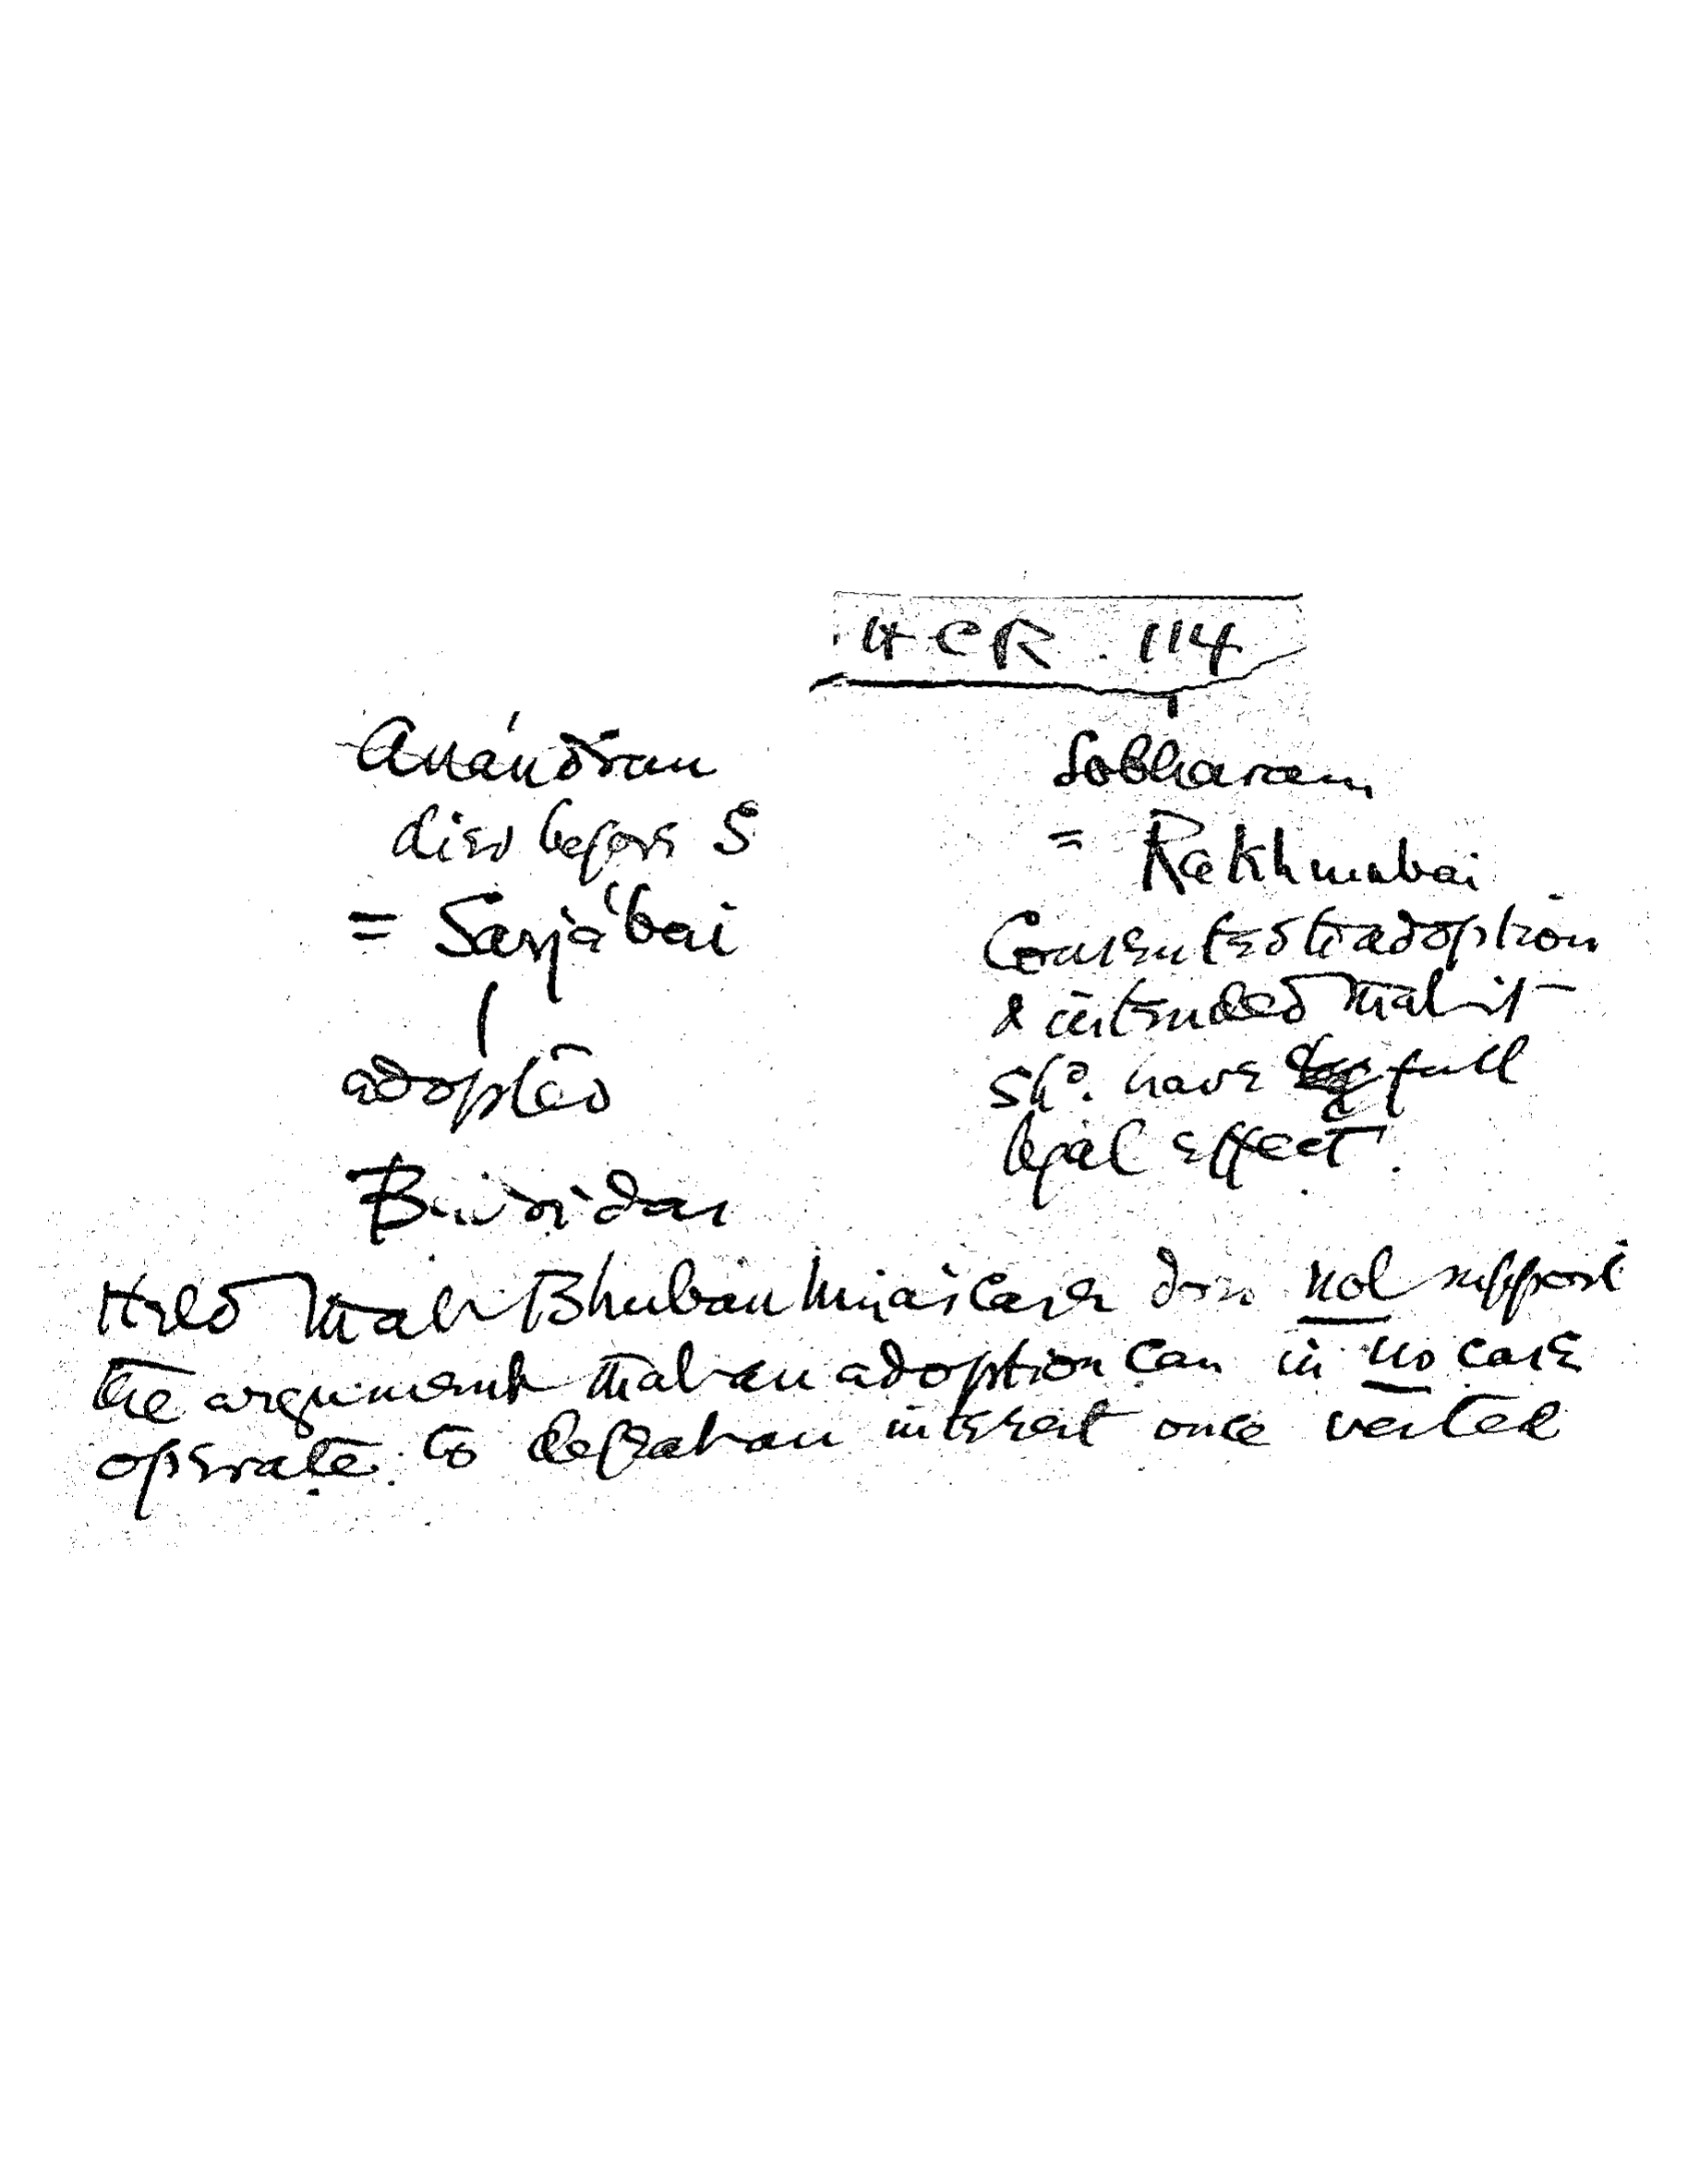 HCR. 114
Anándram
died before S
= Sarjábai
adopted
Sobharam
= Rakhmabai
Consented to adoption
& intended that it
shd. have full
legal effect.
Held that Bhuban Moyai's case does not support
the argument that an adoption can in no case
operate to defeat an interest once vested